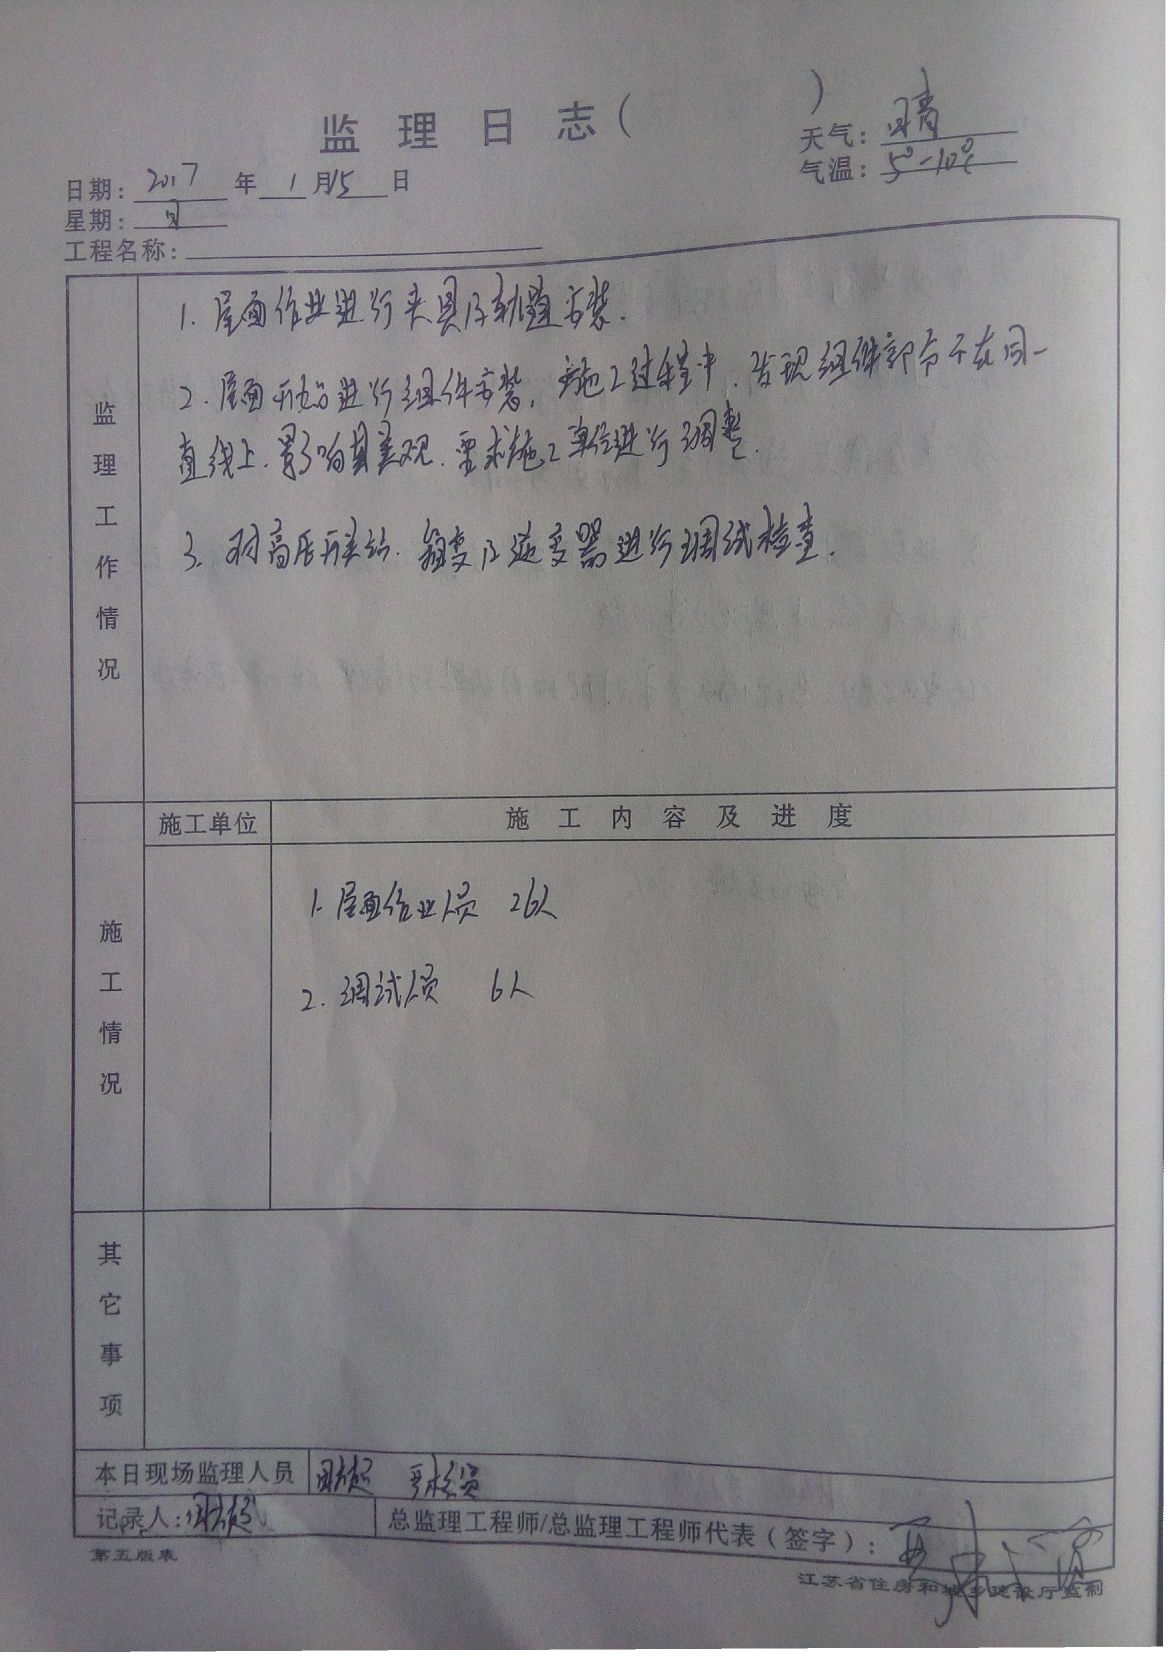 监理日志（ ）
天气：晴
气温：5°-10℃
日期：2017年1月15日
星期：日
工程名称：
监理工作情况
1.屋面作业进行夹具及轨道安装.
2.屋面开始进行组件安装，施工过程中，发现组件部分不在同一
直线上，影响其美观，要求施工单位进行调整.
3.对高压开关站、箱变及逆变器进行调试检查.
施工单位
施工内容及进度
施工情况
1.屋面作业人员 26人
2.调试人员 6人
其它事项
本日现场监理人员
记录人：
总监理工程师/总监理工程师代表（签字）：
第五版表
江苏省住房和城乡建设厅监制